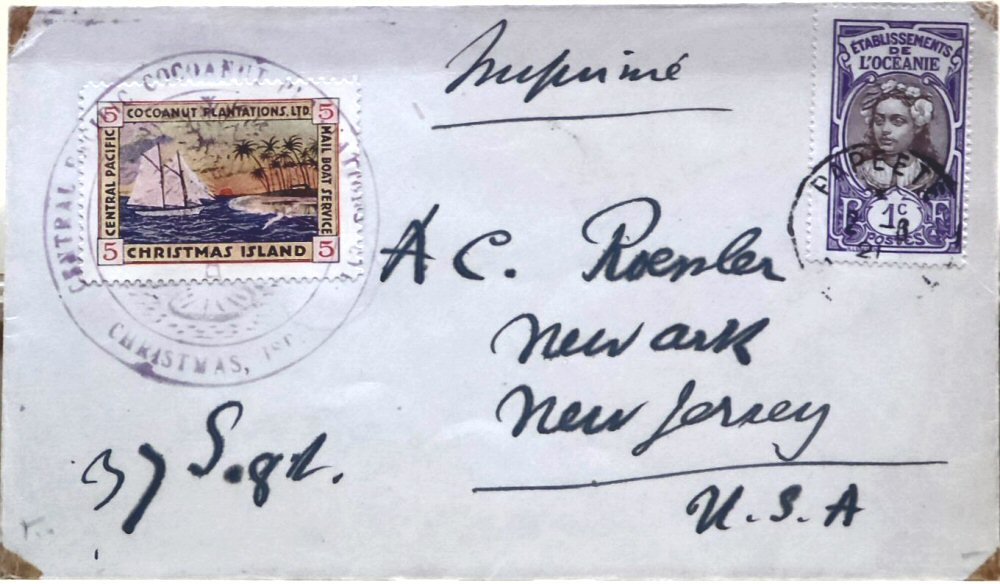 Imprimé
CENTRAL PACIFIC COCOANUT PLANTATIONS
CHRISTMAS, ISL.
5 COCOANUT PLANTATIONS. LTD. 5
CENTRAL PACIFIC
MAIL BOAT SERVICE
5 CHRISTMAS ISLAND 5
ÉTABLISSEMENTS
DE
L'OCÉANIE
PAPEETE
21
1c
POSTES
A C. Roessler
Newark
New Jersey
U.S.A
37 Sgt.